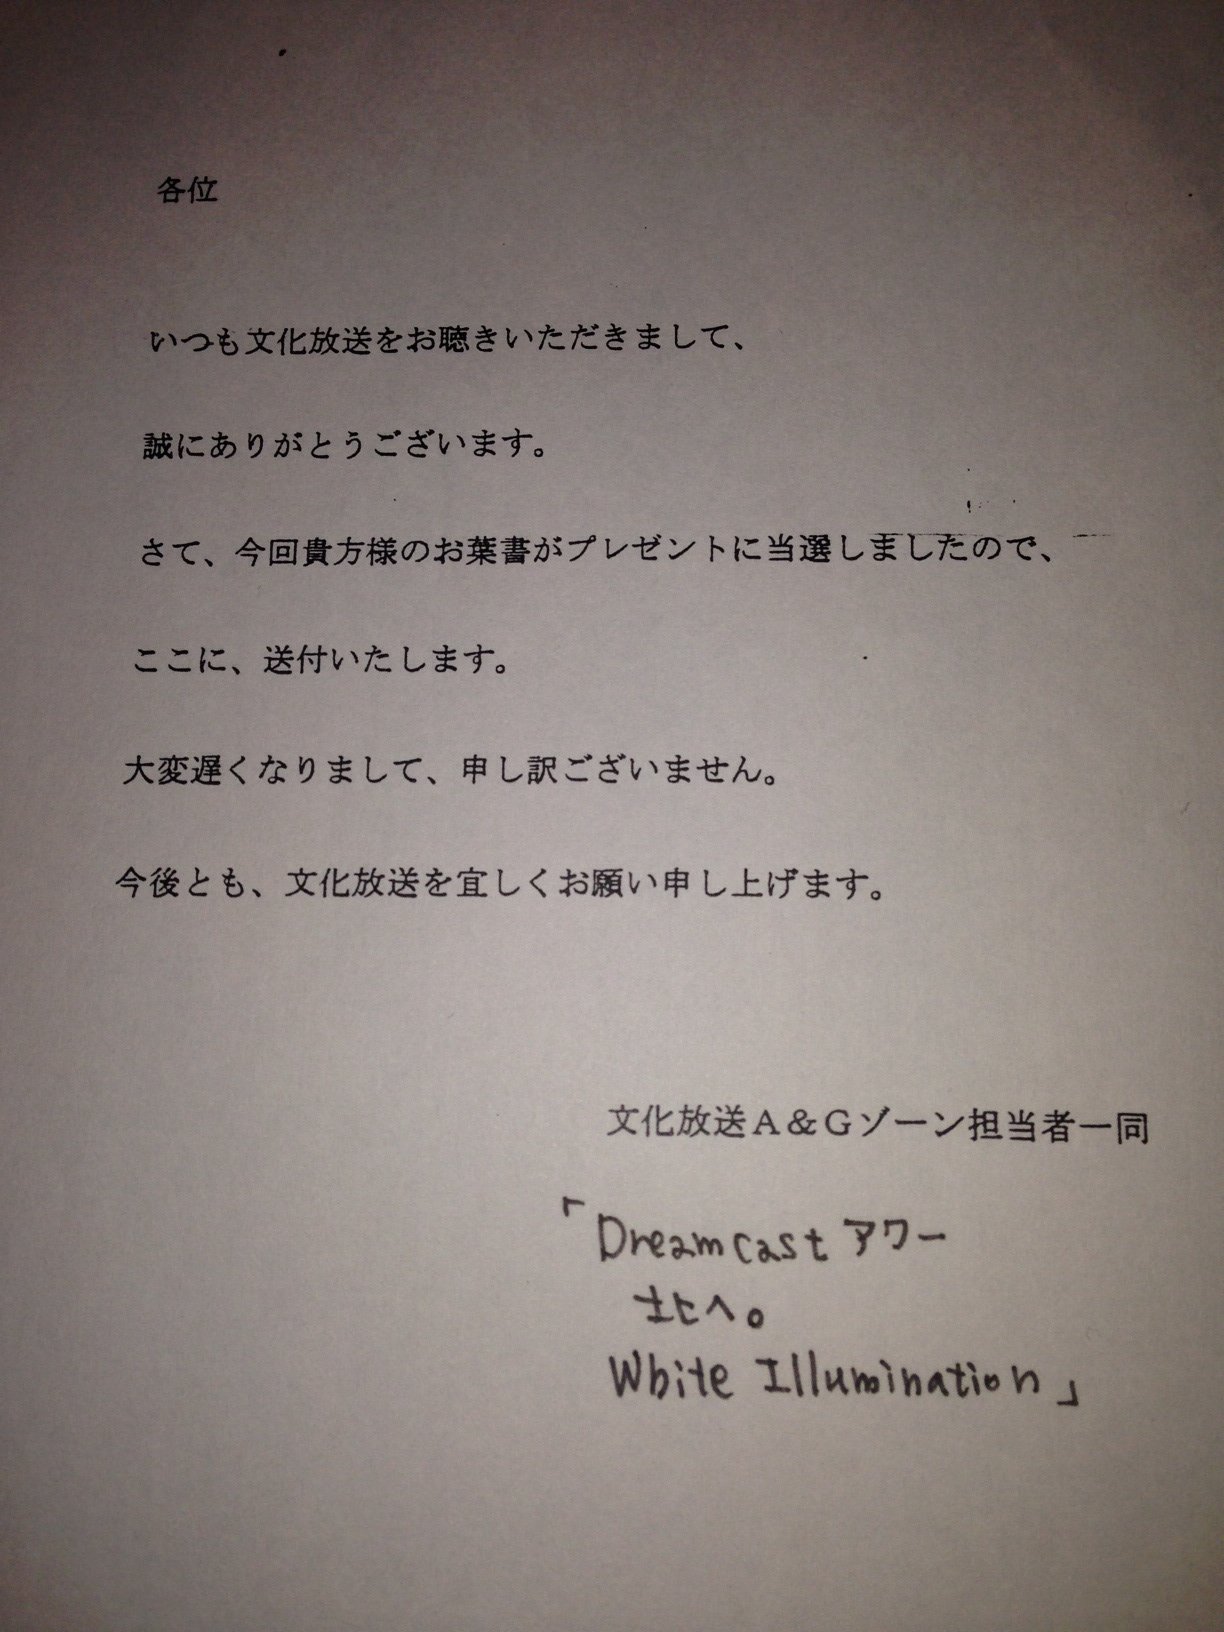 各位
いつも文化放送をお聴きいただきまして、
誠にありがとうございます。
さて、今回貴方様のお葉書がプレゼントに当選しましたので、
ここに、送付いたします。
大変遅くなりまして、申し訳ございません。
今後とも、文化放送を宜しくお願い申し上げます。
文化放送Ａ＆Ｇゾーン担当者一同
「Dreamcast アワー
北へ。
White Illumination」